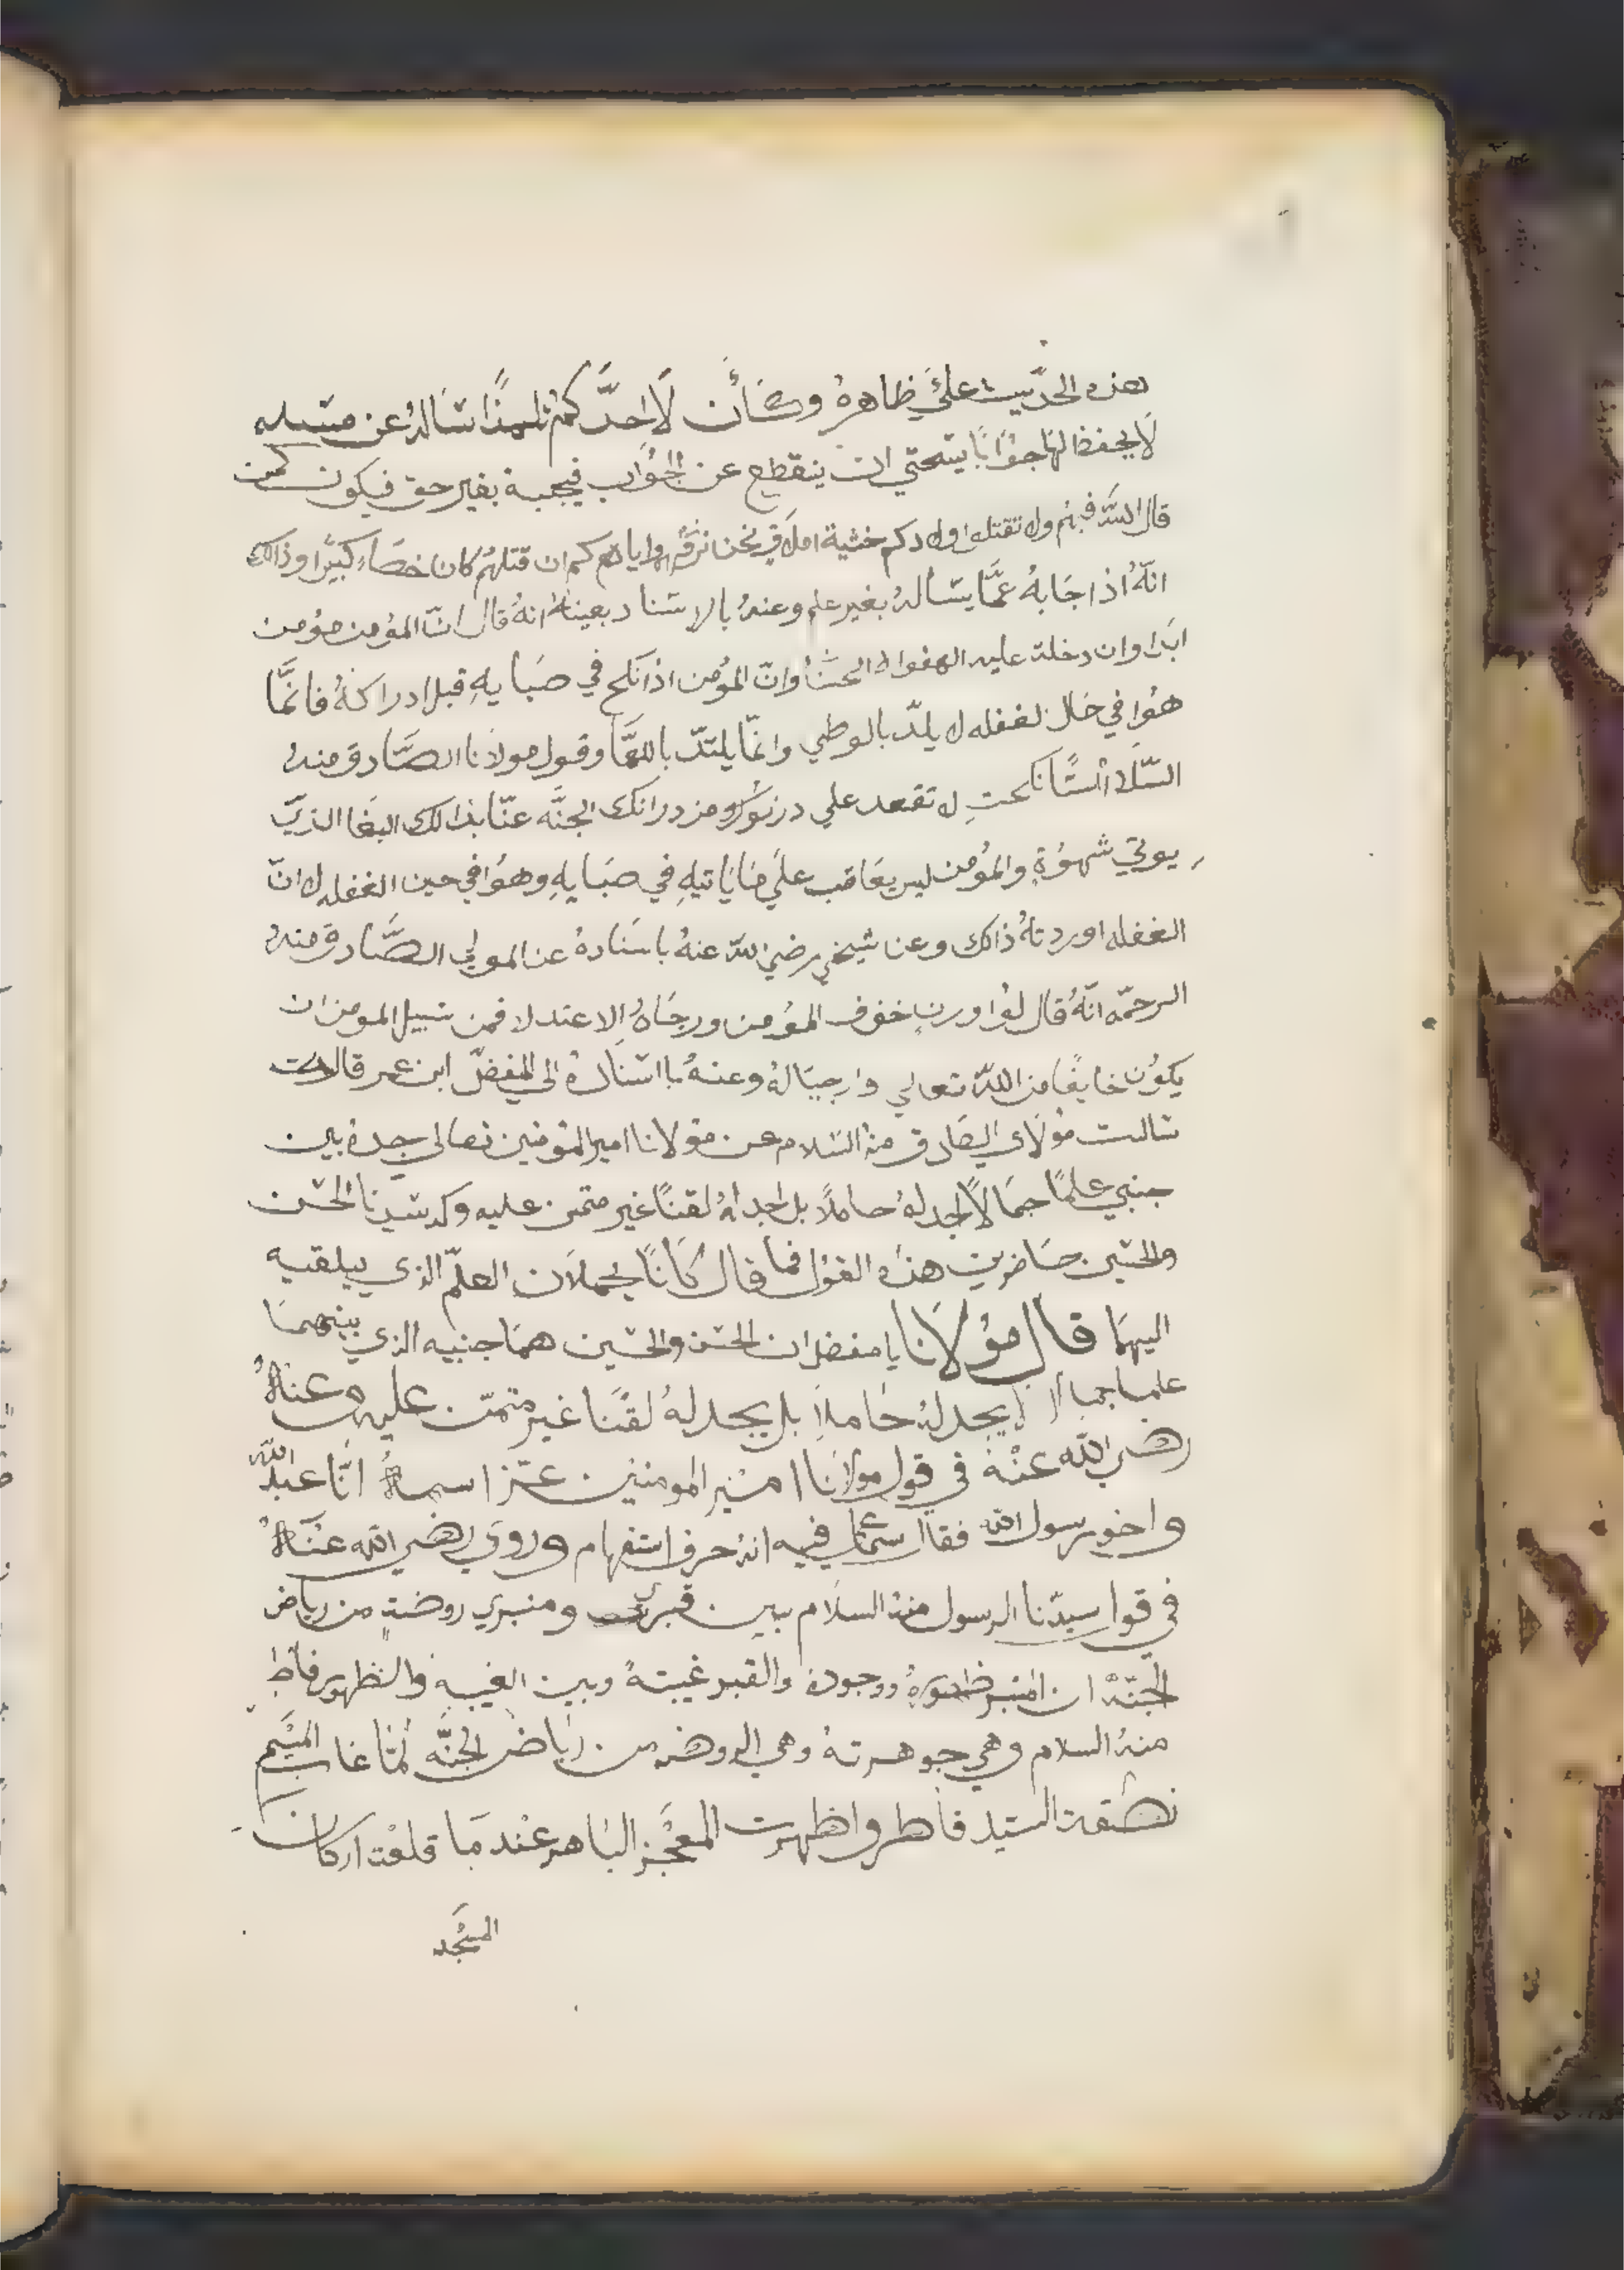 هذه الحدّيث علىَ ظاهرهُ وكَأن لَا احدَّكمُ تلميذًا سَالهُ عن مسَيله
لَا يحفظ لهَا جوَابًا يستحتي ان ينقطع عن الجوَاب فيجيبهُ بغير حق فيكون كمن
قال اللَّه فيهم ولا تقتلوا اولادكم خشية املَاق نحن نرزقهم واياهم كم ان قتلهُم كان خطَاءً كبيًرا وذالك
انّهُ اذ اجَابهُ عمَّا يسَالهُ بغير علم وعنهُ بالاسناد بعينهُ انهُ قال انّ المؤمن مؤمن
ابدَا وان دخلة عليه الهفوا وانّ المؤُمن اذا نكح في صَبا يهِ قبل ادراكهُ فانمَّا
هوُا في حَال لغفله لا يلدّ بالوطي وانمّا يلتدّ باللهَّا وقول مولَانا الصَّادق منهُ
السّلَام لَا تقعد علي درنوك من درانك الجنَّه عنّا بذالك البغَا الذيَ
يوتي شهوُةٍ والموُمن ليس يعَاقب علىَ مَا يَاتيهِ في صبَا يهِ وهوُا في حين الغفله لانّ
الغفله اوردتهُ ذالك وعن شيخي رضي اللّه عنهُ باسَنادهُ عن المولي الصَّادق منهُ
الرحمّه انّهُ قال لوُا وزن خوف المؤمن ورجَاهُ لاعتدلا فمن سبيل المومن ان
يكوُن خايفًا من اللّه تعالي وارجيًا لهُ وعنهُ بااسنَادهُ الي المفضلّ ابن عمر قال
سالت موُلَاي الصَادق منهُ السَلام عن موَلانا امير الموُمنين تعالى جدهُ بين
جنبي علمًا جمًا لَا اجد لهُ حاملًا بل اجد لهُ لقنًا غير متمن عليه وكد سَيدنا الحسَن
والحسَين حَاضرين هذهُ القوُل فما قال كَانَا يحملَان العلمّ الذي يلقيه
اليهمَا قال موُلَانا يا مفضل ان الحسَن والحسَين همَا جنبيه الذي بينهمَا
علما جما لَا يجد لهُ حَاملًا بل يجد لهُ لقنًا غير متمَن عليه وعنهُ
رضي اللّه عنْهُ في قول مولَانا امَير المومنين عَزّ اسمهُ انَّا عبد اللّه
واخو رسول اللّه فقال سماعيل فيه انهُ حرف استفهام وروي رضي اللّه عنَهُ
في قول سيدّنا الرسول منهُ السلَام بين قبري ومنبري روضة من رياض
الجنّهْ ان المنبر ظهورهُ ووجودهُ والقبر غيبتهُ وبين الغيبه والظهور فاطر
منهُ السلام وهي جوهرتهُ وهي الروضه من رياض الجنَّه لمّا غاب الميَم
نطقة السَيد فاطر واظهرت المعَجْز البَاهر عنْد مَا قلعْت اركان
المسَجْد